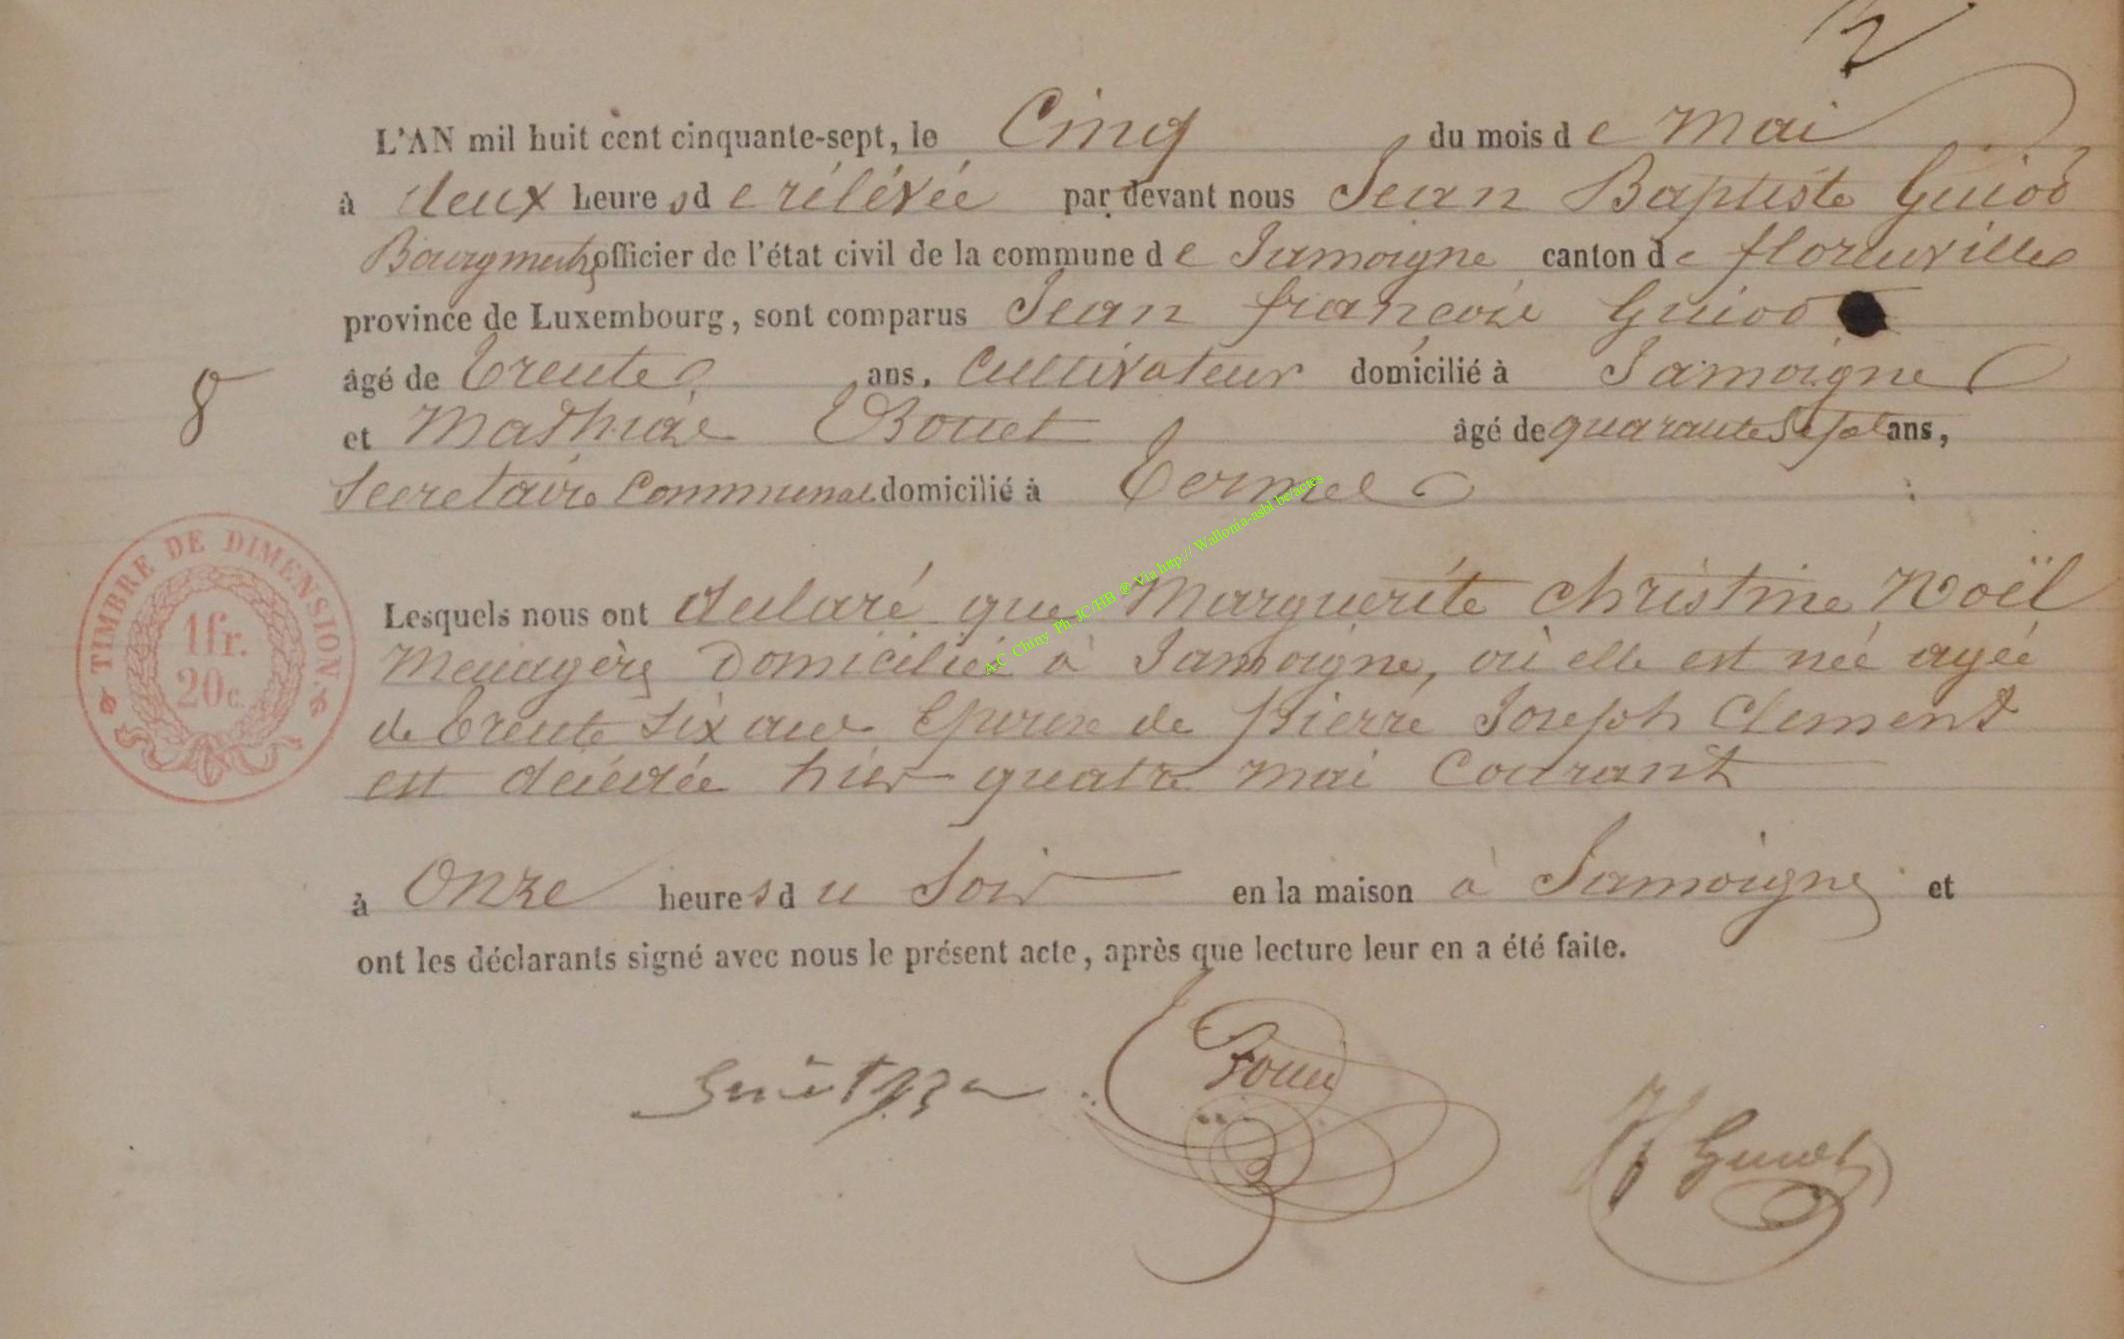 2
L'AN mil huit cent cinquante-sept, le Cinq du mois de mai
à deux heures de rélévée par devant nous Jean Baptiste Guiot
Bourgmestre officier de l'état civil de la commune de Jamoigne canton de florenville
province de Luxembourg, sont comparus Jean françois Guiot
âgé de trente ans, Cultivateur domicilié à Jamoigne
et Mathias Bouet âgé de quarante sept ans,
8
Secretaire Communal domicilié à termes :
TIMBRE DE DIMENSION
1 fr.
20 c.
Lesquels nous ont declaré que Marguerite Christine Noël
Menagère Domicilié à Jamoigne, où elle est née agée
de trente six ans Epouse de Pierre Joseph Clement
est décédée hier quatre mai Courant
à Onze heures du Soir en la maison à Jamoigne et
ont les déclarants signé avec nous le présent acte, après que lecture leur en a été faite.
Guiot
A.C. Chiny Ph JC/HB @ Via http:// Wallonia-asbl be/actes